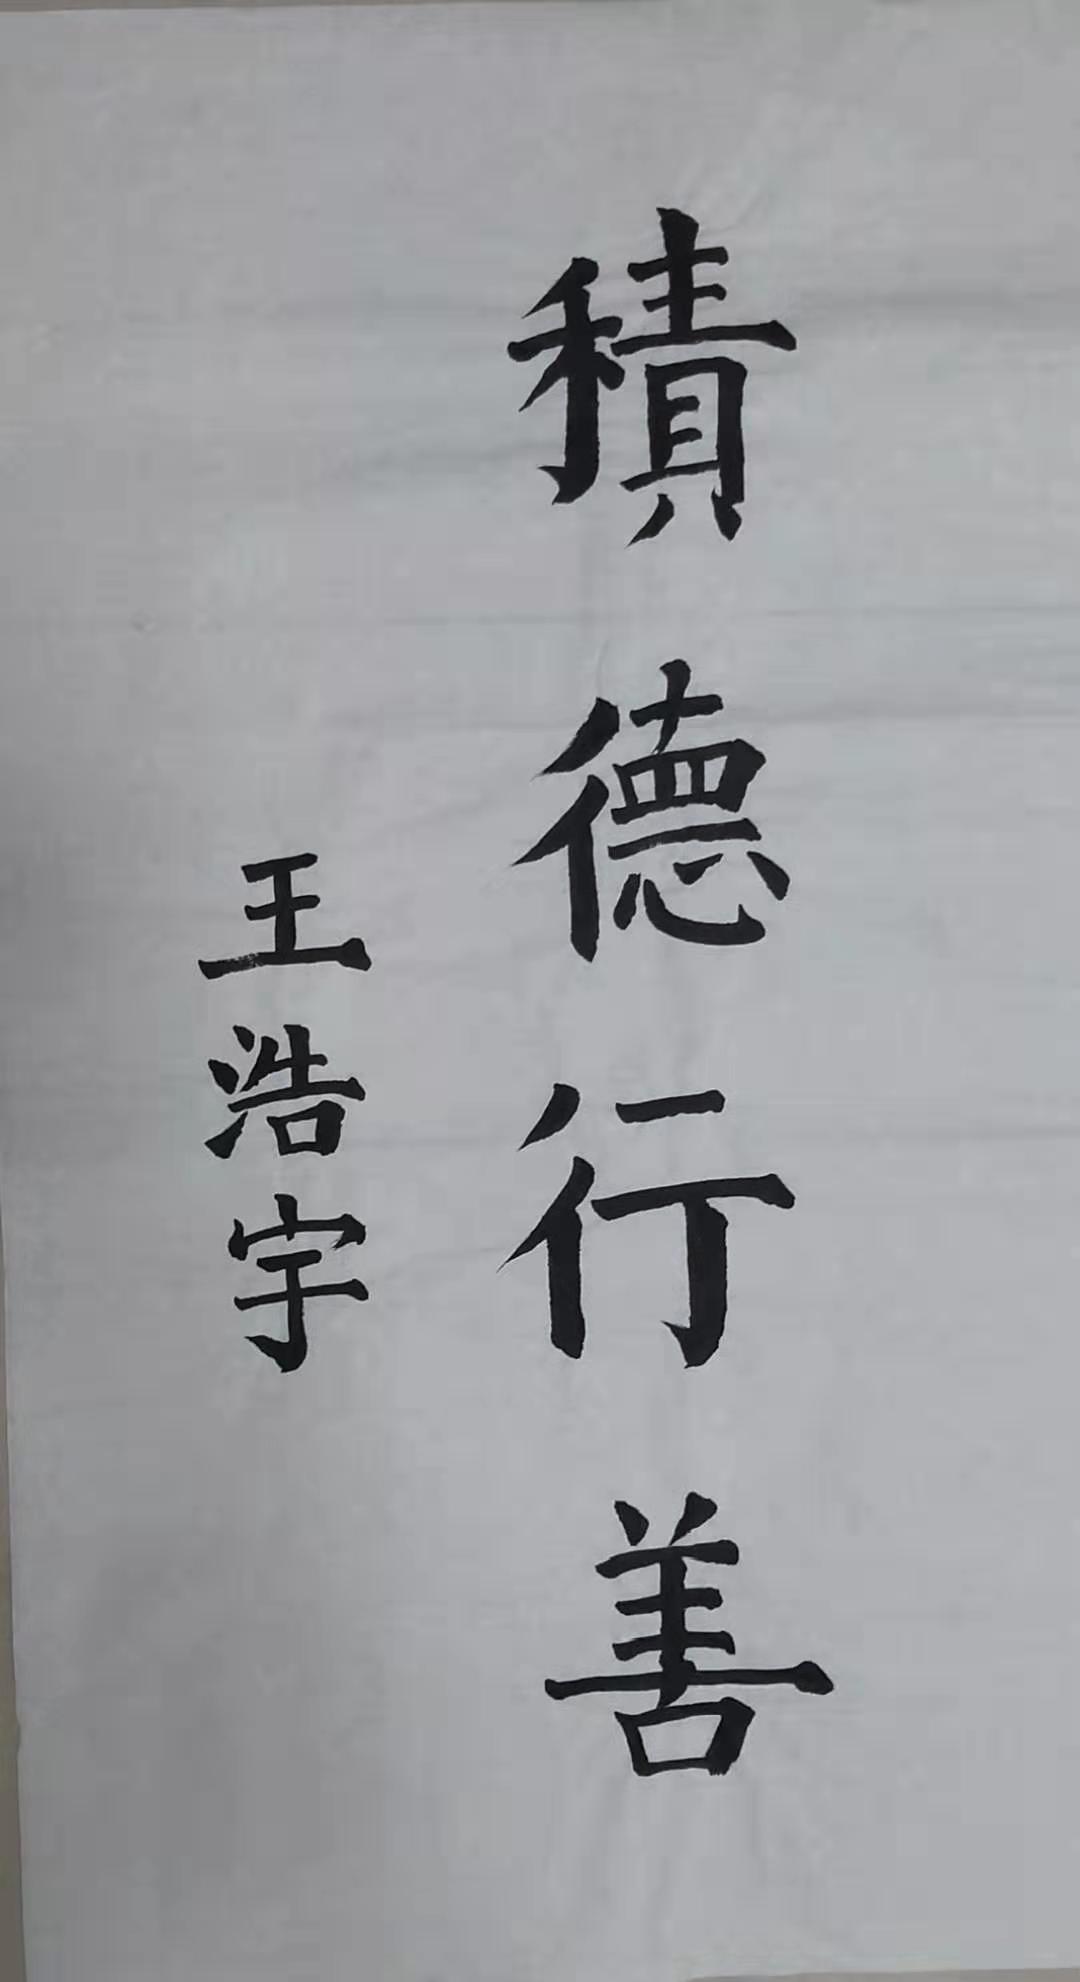 積德行善
王浩宇